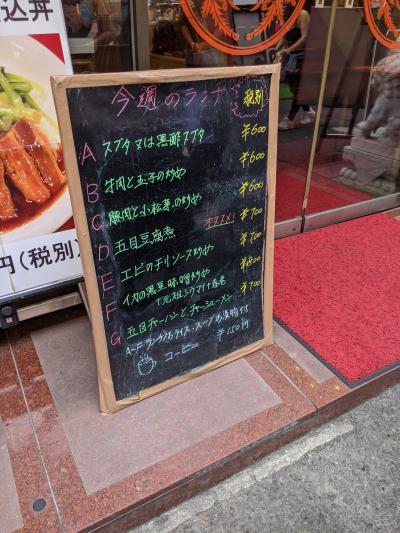 込丼
円(税別)
今週のランチ 税別
A スブタ又は黒酢スブタ ¥600
B 牛肉と玉子の炒め ¥600
C 豚肉と小松菜の炒め ¥600
D 五目豆腐煮 オススメ! ¥700
E エビのチリソース炒め ¥700
F イカの黒豆味噌炒め ¥800
G 五目チャーハンとチャーシューメン ¥700
A〜Fランチはライス・スープお漬物付
コーヒー ¥150円